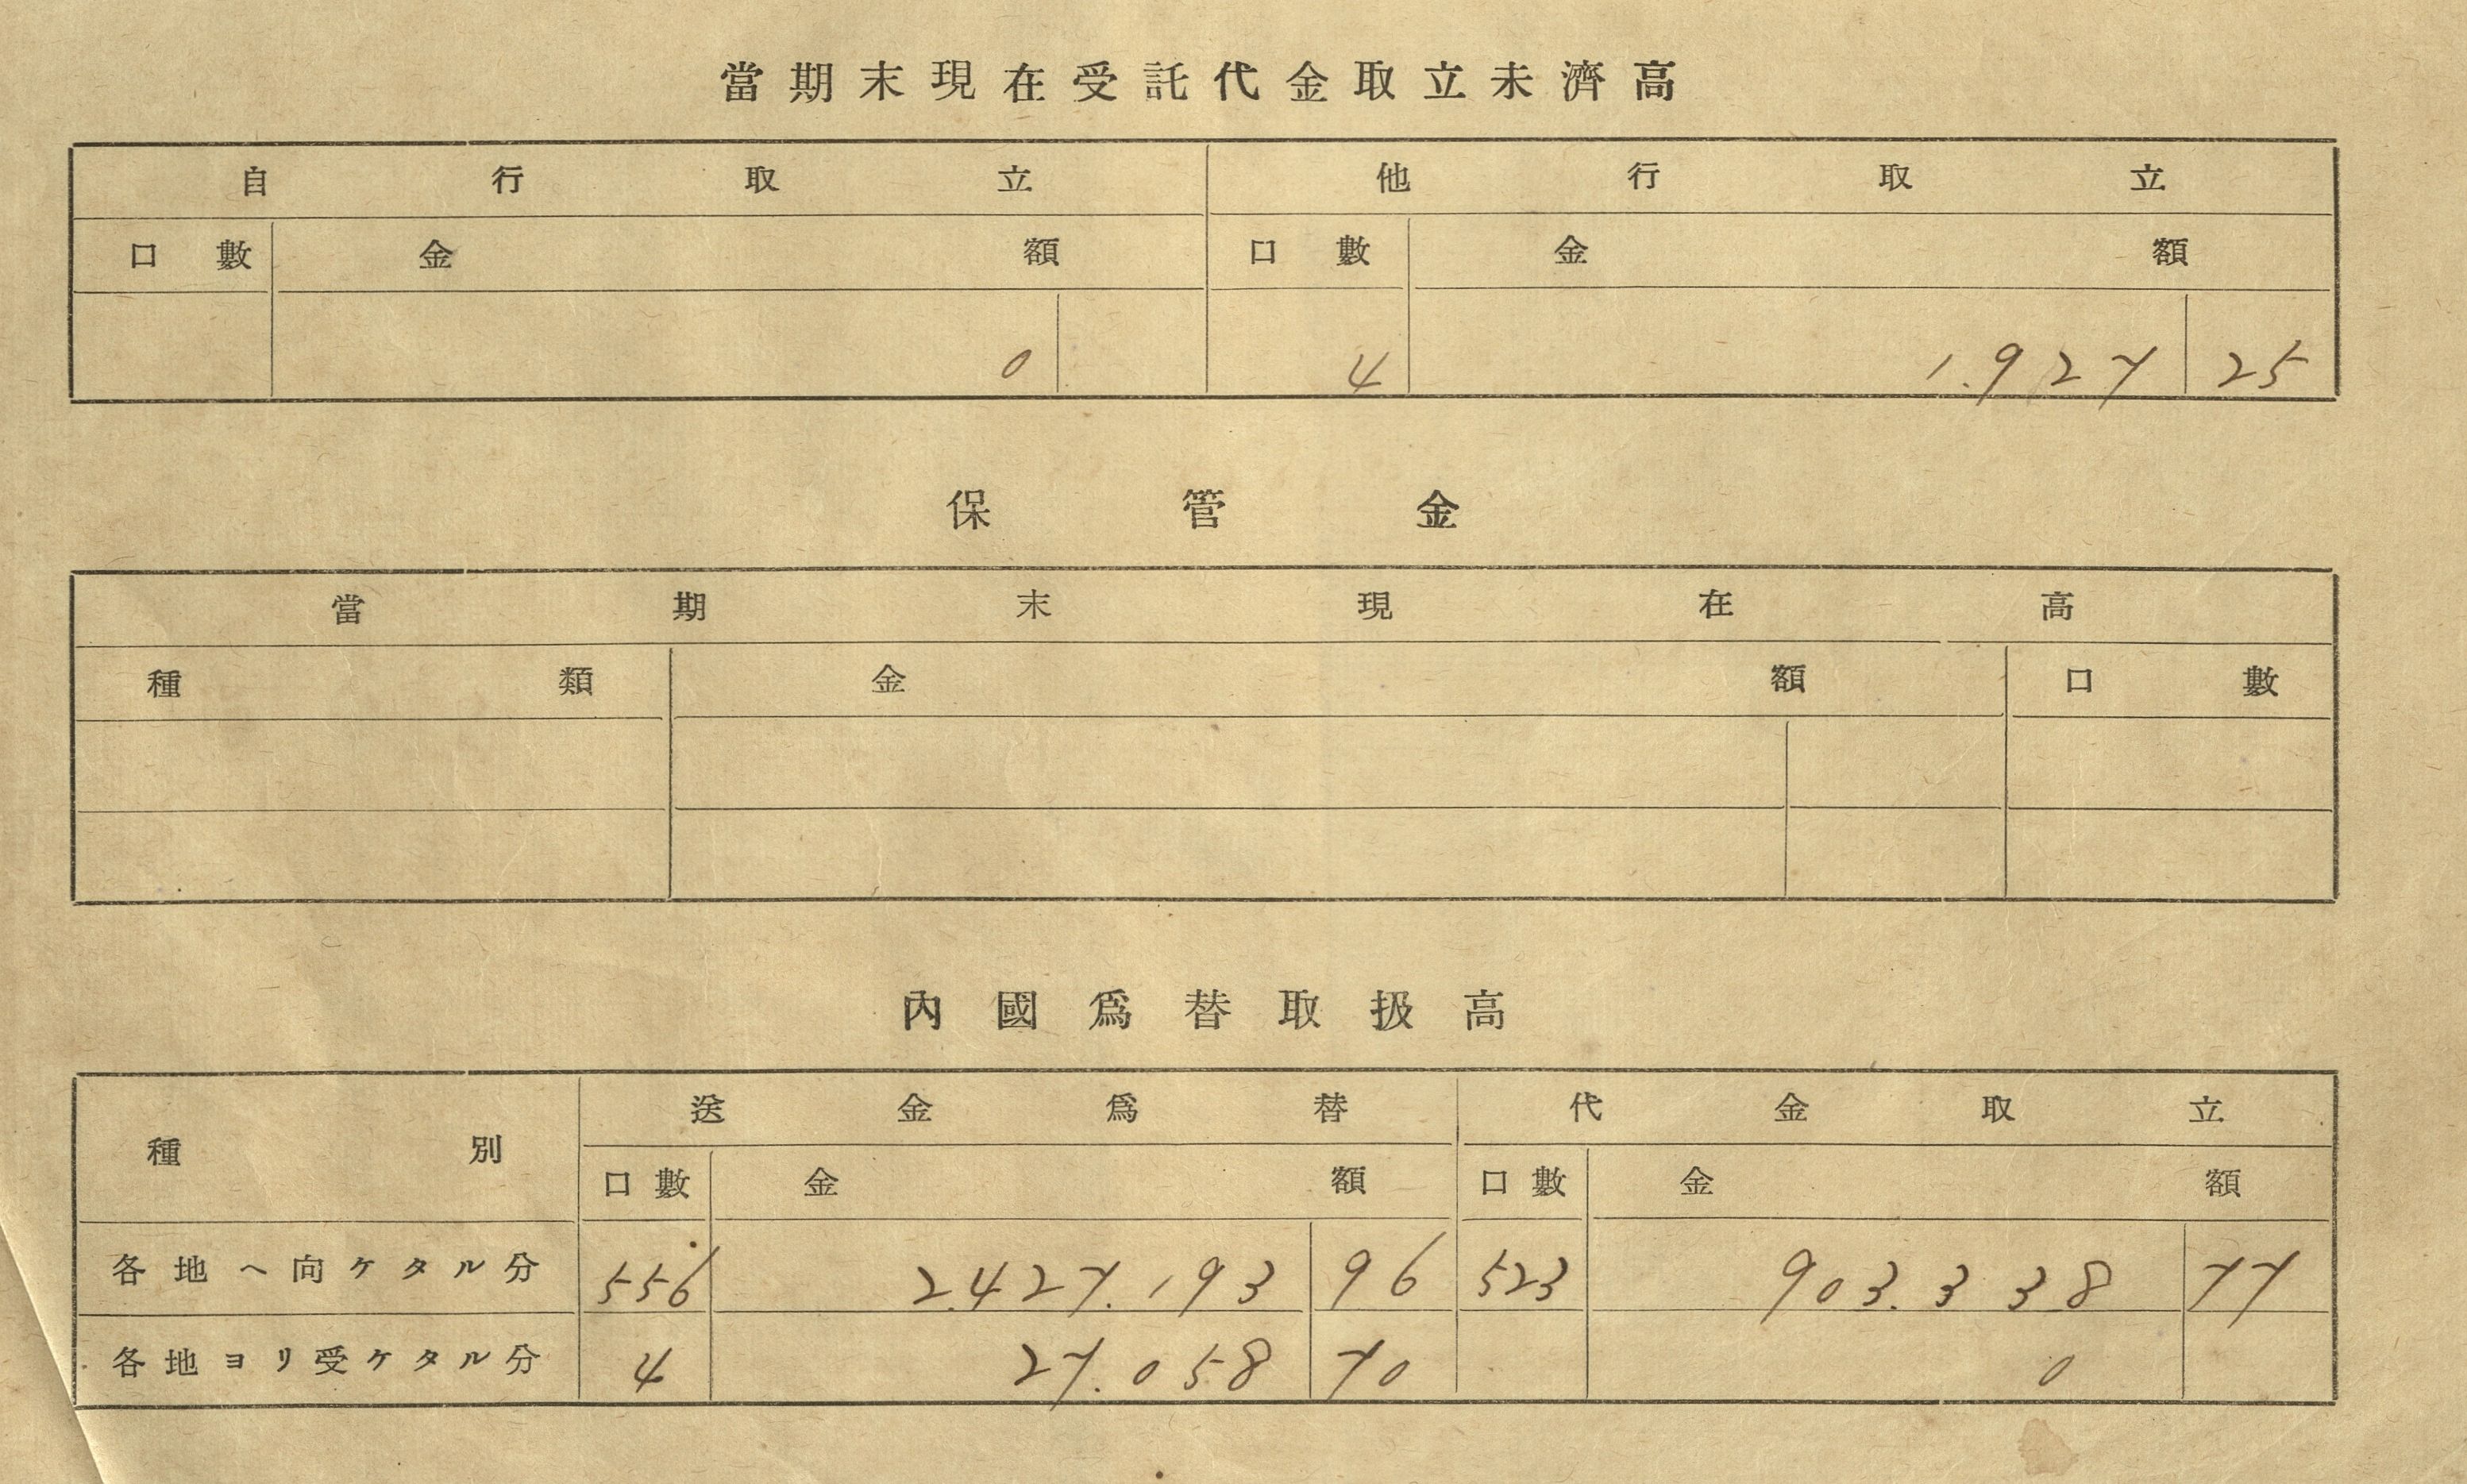 當期末現在受託代金取立未濟高
自行取立 他行取立
口數 金額 口數 金額
0 4 1.927 25
保管金
當期末現在高
種類 金額 口數
內國爲替取扱高
種別 送金爲替 代金取立
口數 金額 口數 金額
各地ヘ向ケタル分 556 2.427.193 96 523 903.338 77
各地ヨリ受ケタル分 4 27.058 70 0